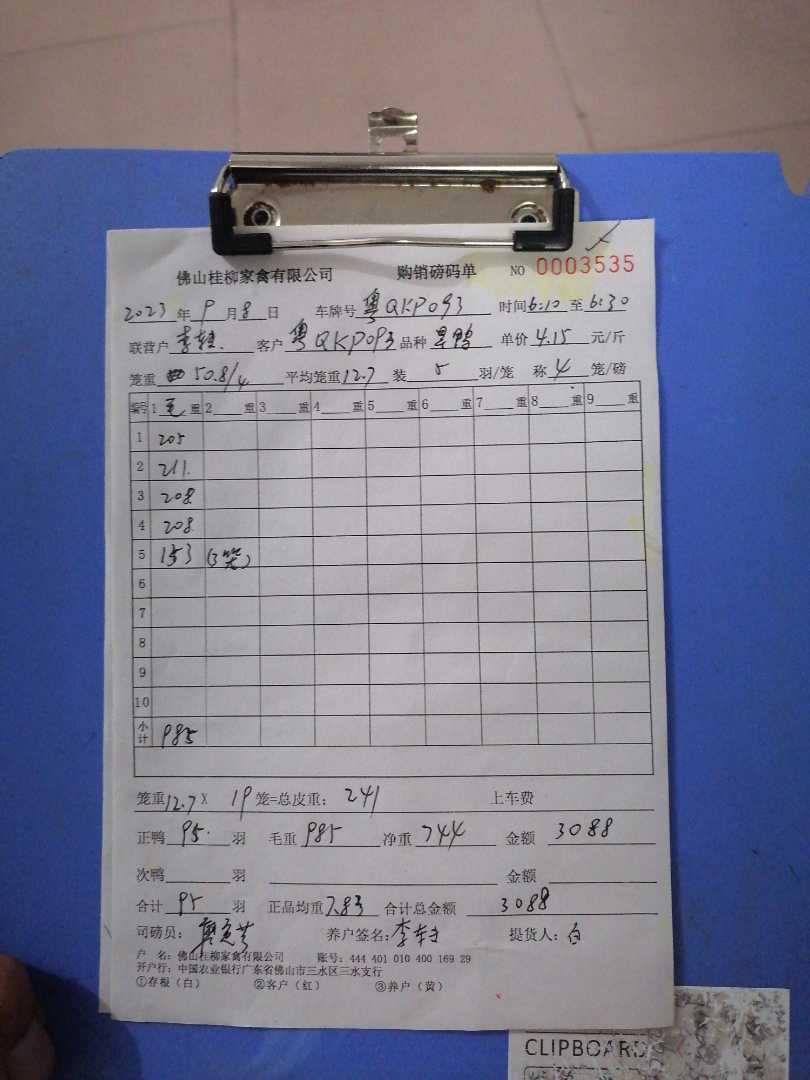 佛山桂柳家禽有限公司 购销磅码单 NO 0003535
2023年9月8日 车牌号 粤QKP093 时间6:10至6:30
联营户 客户 粤QKP093 品种 旱鸭 单价 4.15 元/斤
笼重 50.8/4 平均笼重12.7 装 5 羽/笼 称 4 笼/磅
编号 1 毛 重 2 重 3 重 4 重 5 重 6 重 7 重 8 重 9 重
1 205
2 211.
3 208
4 208
5 153 (3笼)
6
7
8
9
10
小计 985
笼重12.7X 19笼=总皮重: 241 上车费
正鸭 95. 羽 毛重 985 净重 744 金额 3088
次鸭 羽 金额
合计 95 羽 正品均重 7.83 合计总金额 3088
司磅员: 养户签名: 提货人: 白
户 名: 佛山桂柳家禽有限公司 账号: 444 401 010 400 169 29
开户行: 中国农业银行广东省佛山市三水区三水支行
①存根(白) ②客户(红) ③养户(黄)
CLIPBOARD